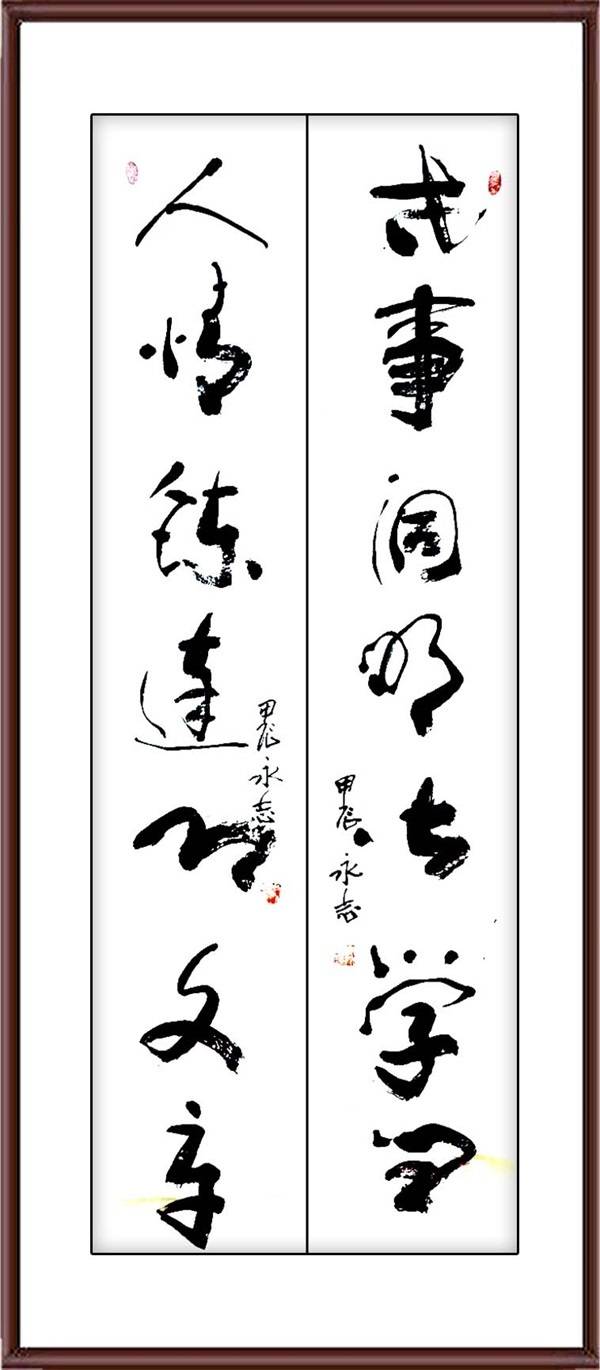 世事洞明皆学问
甲辰永志
人情練達即文章
甲辰永志